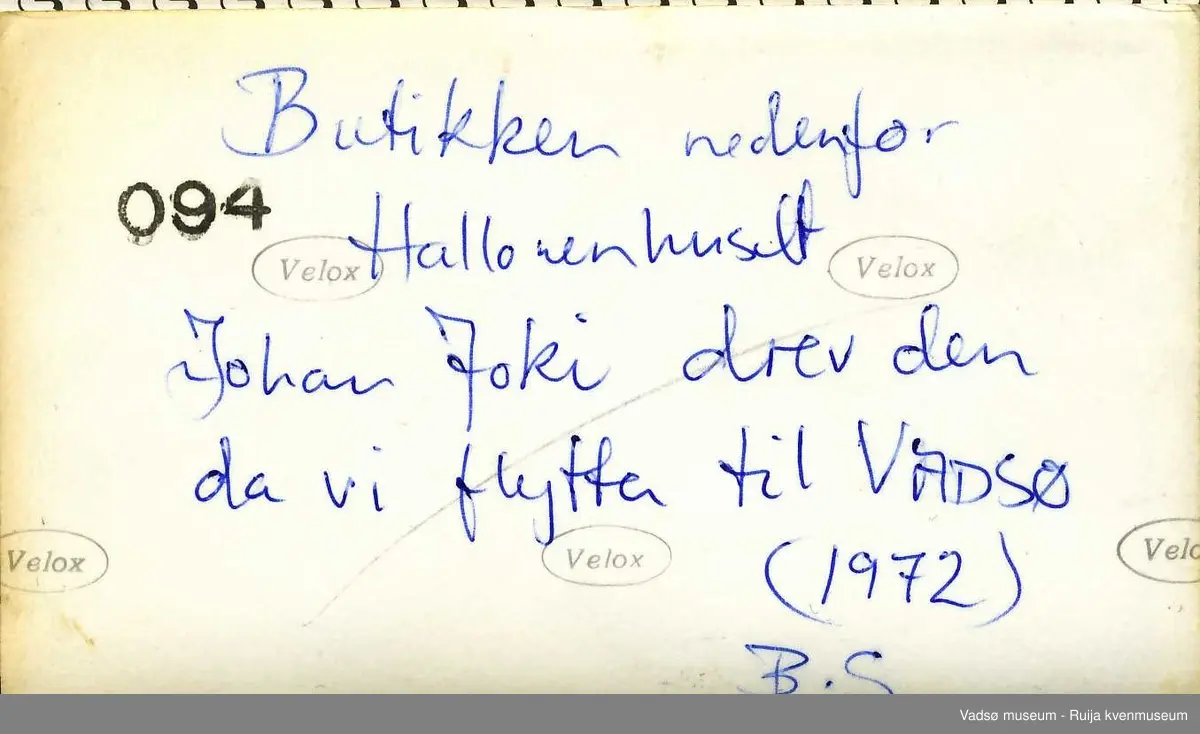 Butikken nedenfor
094
Hallonenhuset
Velox Velox
Johan Joki drev den
da vi flytta til VADSØ
Velox Velox Velo
(1972)
B.S
Vadsø museum - Ruija kvenmuseum